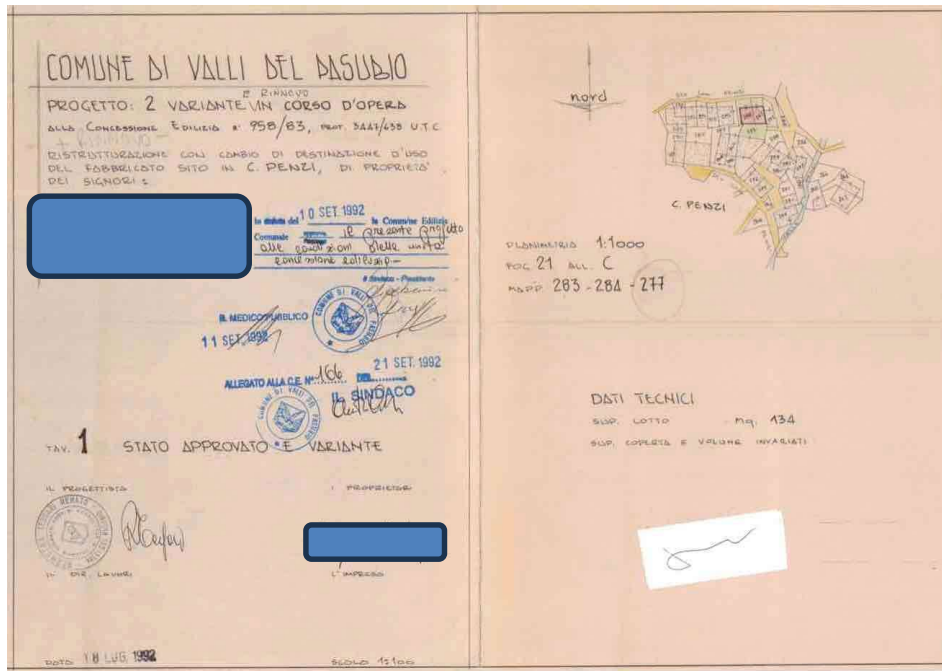 COMUNE DI VALLI DEL PASUBIO
E RINNOVO
PROGETTO: 2 VARIANTE IN CORSO D'OPERA
ALLA CONCESSIONE EDILIZIA N° 958/83, PROT. 3447/638 U.T.C.
RISTRUTTURAZIONE CON CAMBIO DI DESTINAZIONE D'USO
DEL FABBRICATO SITO IN C. PENZI, DI PROPRIETA'
DEI SIGNORI:
In seduta del 10 SET. 1992 la Comm/ne Edilizia
Comunale il presente progetto
alle condizioni della unita
concessione edilizia
Il Sindaco - Presidente
IL MEDICO PUBBLICO
COMUNE DI VALLI DEL PASUBIO
11 SET. 1992
21 SET. 1992
ALLEGATO ALLA C.E. N° 166 DEL
IL SINDACO
COMUNE DI VALLI DEL PASUBIO
TAV. 1 STATO APPROVATO E VARIANTE
IL PROGETTISTA
I PROPRIETARI
IL DIR. LAVORI
L'IMPRESA
DATA 18 LUG. 1992
SCALA 1:100
nord
C. PENZI
PLANIMETRIA 1:1000
FOG. 21 ALL. C
MAPP. 283 - 284 - 277
DATI TECNICI
SUP. LOTTO Mq. 134
SUP. COPERTA E VOLUME INVARIATI